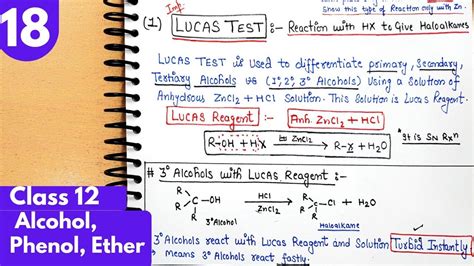 18
Class 12
Alcohol,
Phenol, Ether
Imf.
Show this type of Reaction only with Zn.
(1) LUCAS TEST :- Reaction with HX to Give Haloalkanes
LUCAS TEST is used to differentiate primary, Secondary,
Tertiary Alcohols vs (1°, 2°, 3° Alcohols) Using a Solution of
Anhydrous ZnCl2 + HCl Solution. This Solution is Lucas Reagent.
LUCAS Reagent :- Anh. ZnCl2 + HCl
R-OH + HX ZnCl2 R-X + H2O
*It is SN Rxn
# 3° Alcohols with Lucas Reagent :-
R
R C-OH HCl ZnCl2 R C-Cl + H2O
R
3° Alcohol
Haloalkane
3° Alcohols react with Lucas Reagent and Solution Turbid Instantly
, means 3° Alcohols react fastly.